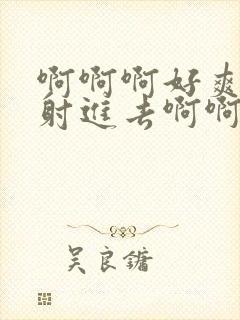 啊啊啊好爽
射进去啊啊
吴良镛